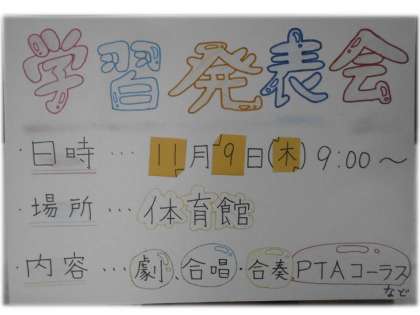 学習発表会
・日時…11月9日(木)9:00〜
・場所…体育館
・内容…劇、合唱・合奏、PTAコーラス
など